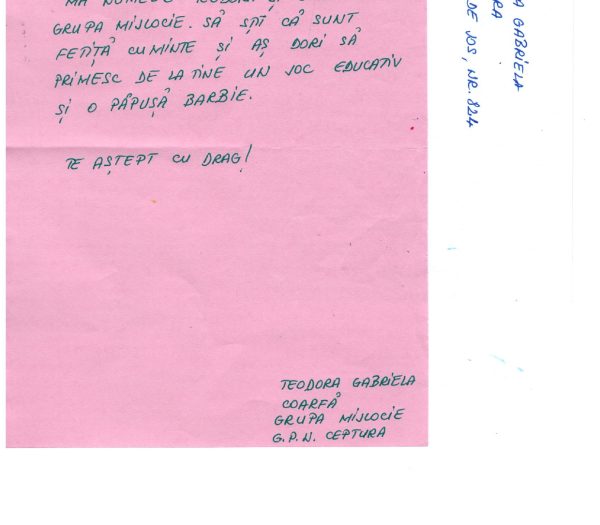 GRUPA MIJLOCIE. SĂ ȘTI CĂ SUNT
FETIȚĂ CUMINTE ȘI AȘ DORI SĂ
PRIMESC DE LA TINE UN JOC EDUCATIV
ȘI O PĂPUȘĂ BARBIE.
TE AȘTEPT CU DRAG!
TEODORA GABRIELA
COARFĂ
GRUPA MIJLOCIE
G.P.N. CEPTURA
GABRIELA
DE JOS, NR. 824